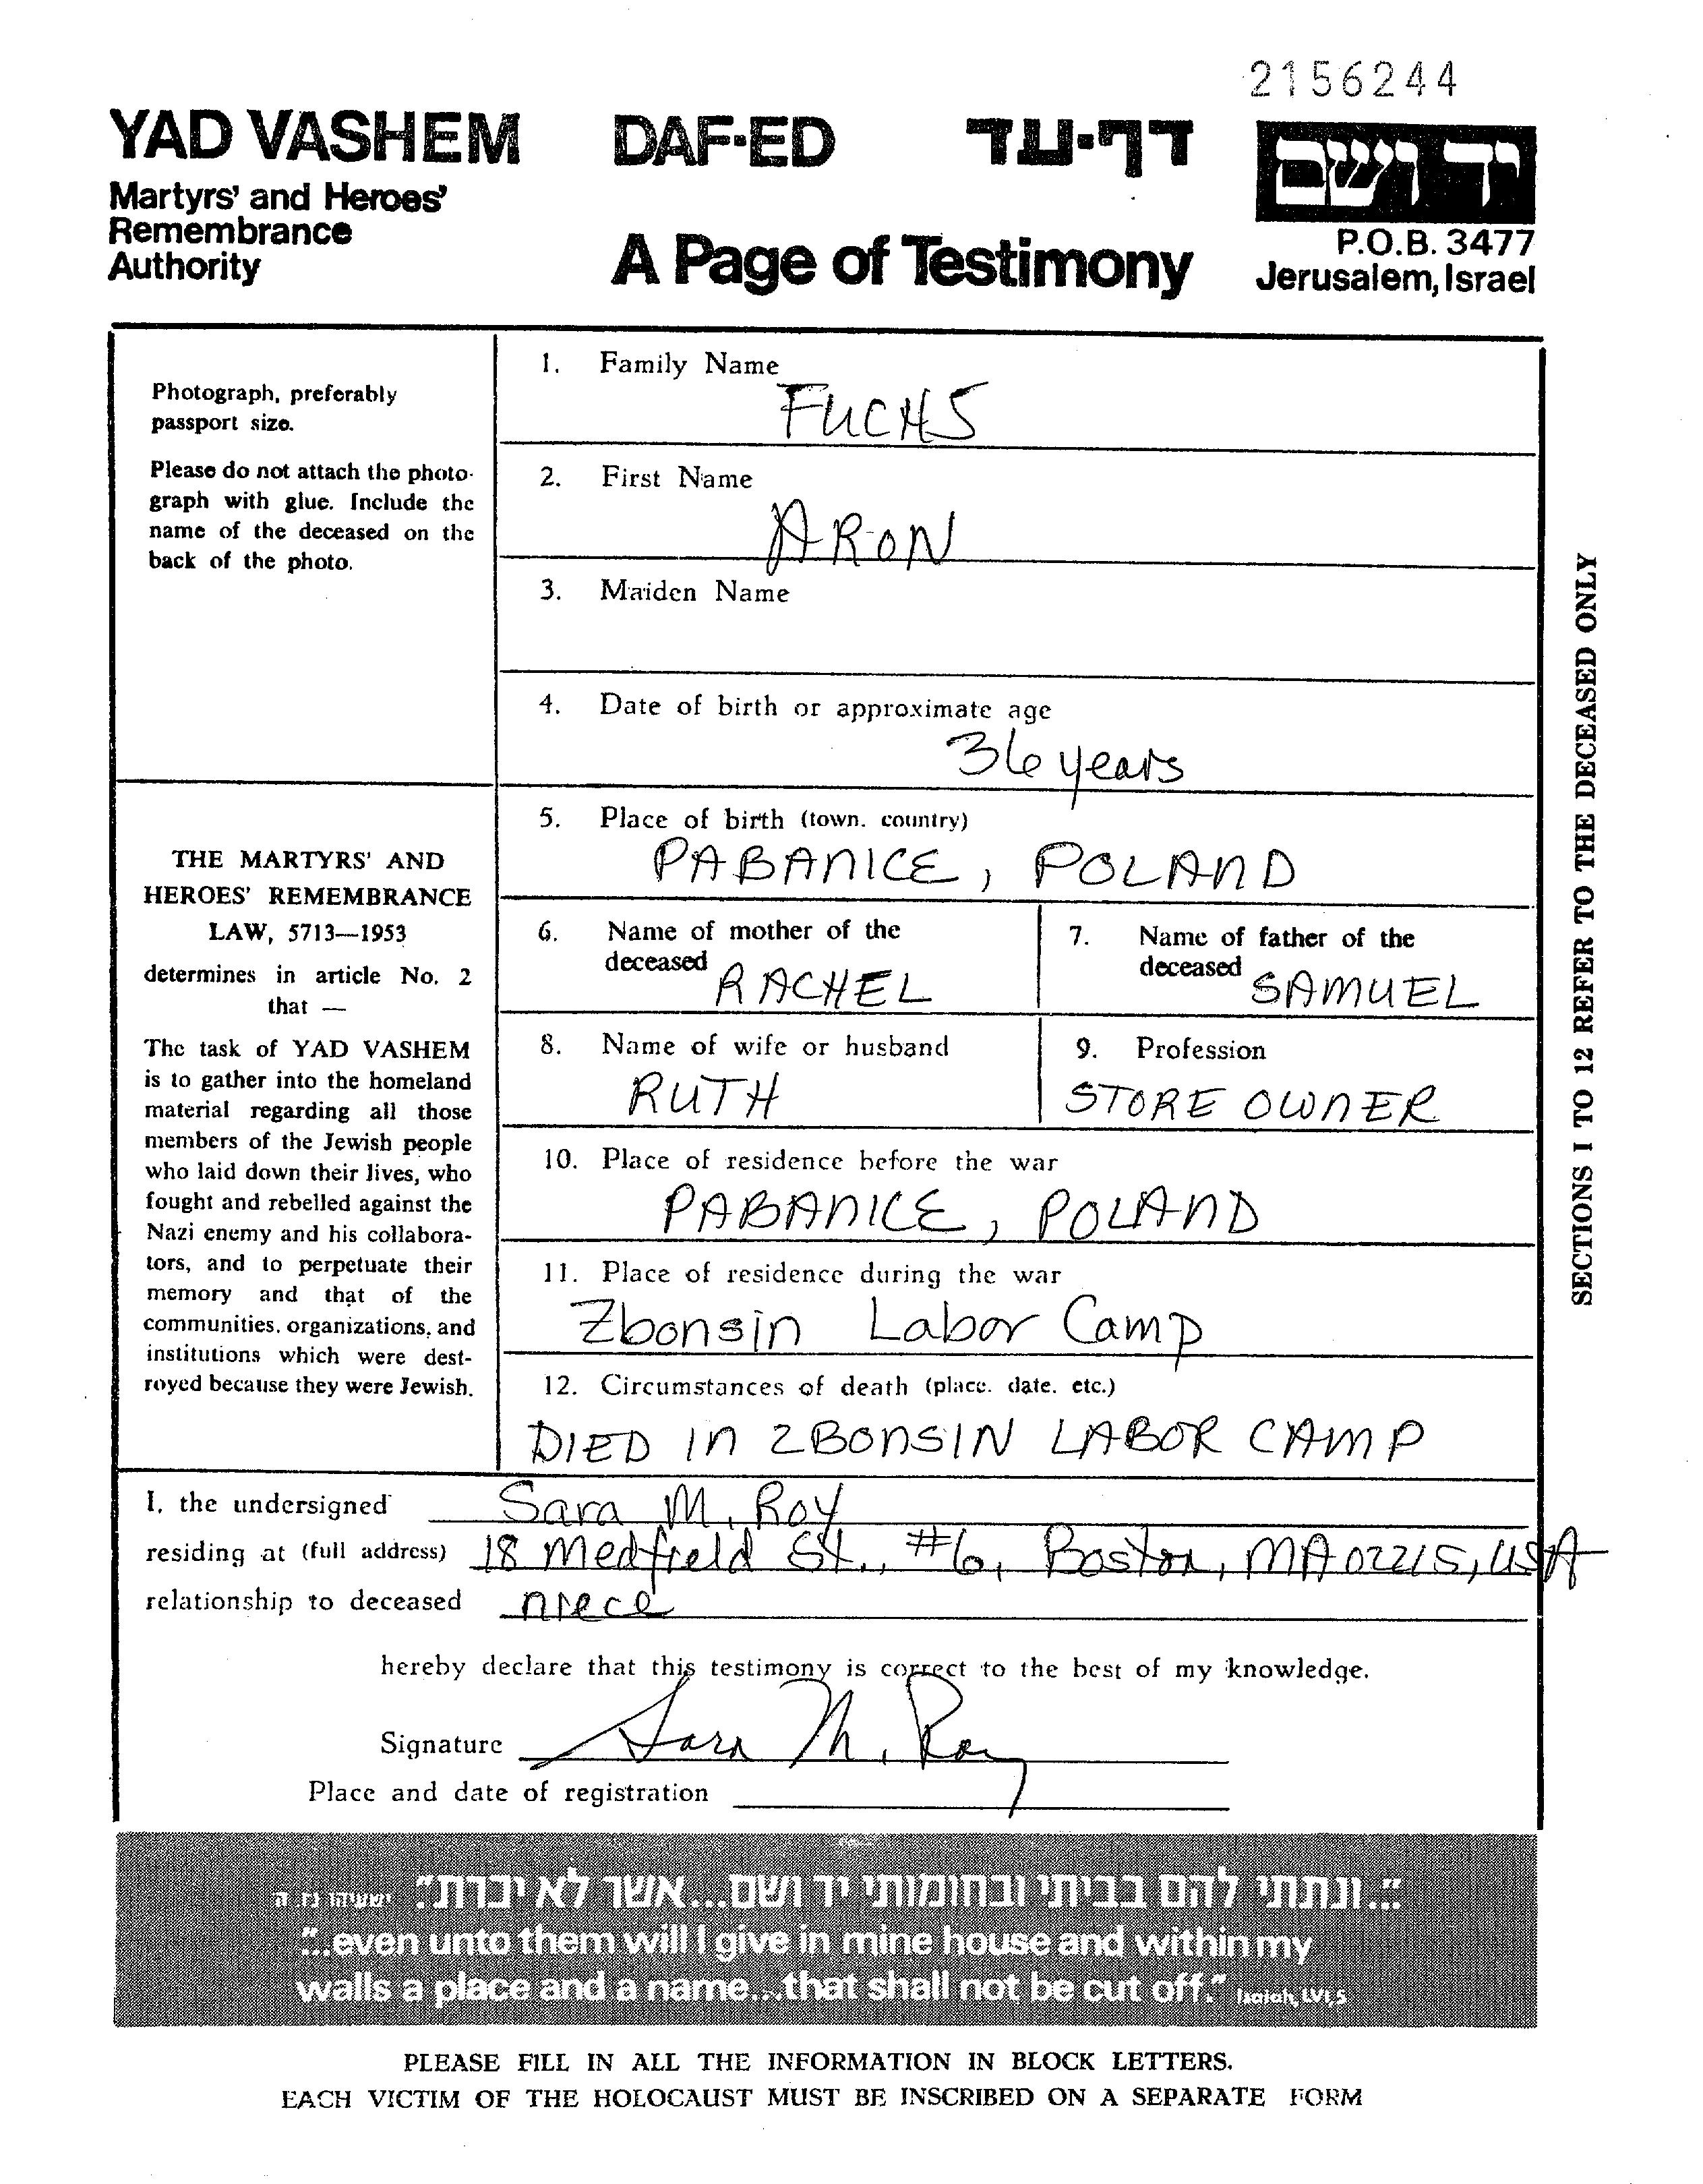 2156244
YAD VASHEM
DAF-ED
דף-עד
יד ושם
Martyrs' and Heroes'
Remembrance
Authority
A Page of Testimony
P.O.B. 3477
Jerusalem, Israel
Photograph, preferably
passport size.
Please do not attach the photo-
graph with glue. Include the
name of the deceased on the
back of the photo.
THE MARTYRS' AND
HEROES' REMEMBRANCE
LAW, 5713—1953
determines in article No. 2
that —
The task of YAD VASHEM
is to gather into the homeland
material regarding all those
members of the Jewish people
who laid down their lives, who
fought and rebelled against the
Nazi enemy and his collabora-
tors, and to perpetuate their
memory and that of the
communities, organizations, and
institutions which were dest-
royed because they were Jewish.
1. Family Name
FUCHS
2. First Name
ARON
3. Maiden Name
4. Date of birth or approximate age
36 years
5. Place of birth (town, country)
PABANICE, POLAND
6. Name of mother of the
deceased RACHEL
7. Name of father of the
deceased SAMUEL
8. Name of wife or husband
RUTH
9. Profession
STORE OWNER
10. Place of residence before the war
PABANICE, POLAND
11. Place of residence during the war
Zbonsin Labor Camp
12. Circumstances of death (place, date, etc.)
DIED IN ZBONSIN LABOR CAMP
SECTIONS 1 TO 12 REFER TO THE DECEASED ONLY
I, the undersigned Sara M. Roy
residing at (full address) 18 Medfield St., #6, Boston, MA 02215, USA
relationship to deceased niece
hereby declare that this testimony is correct to the best of my knowledge.
Signature Sara M. Roy
Place and date of registration
"...ונתתי להם בביתי ובחומותי יד ושם...אשר לא יכרת" ישעיהו נו, ה
"...even unto them will I give in mine house and within my
walls a place and a name...that shall not be cut off." Isaiah, LVI, 5
PLEASE FILL IN ALL THE INFORMATION IN BLOCK LETTERS.
EACH VICTIM OF THE HOLOCAUST MUST BE INSCRIBED ON A SEPARATE FORM